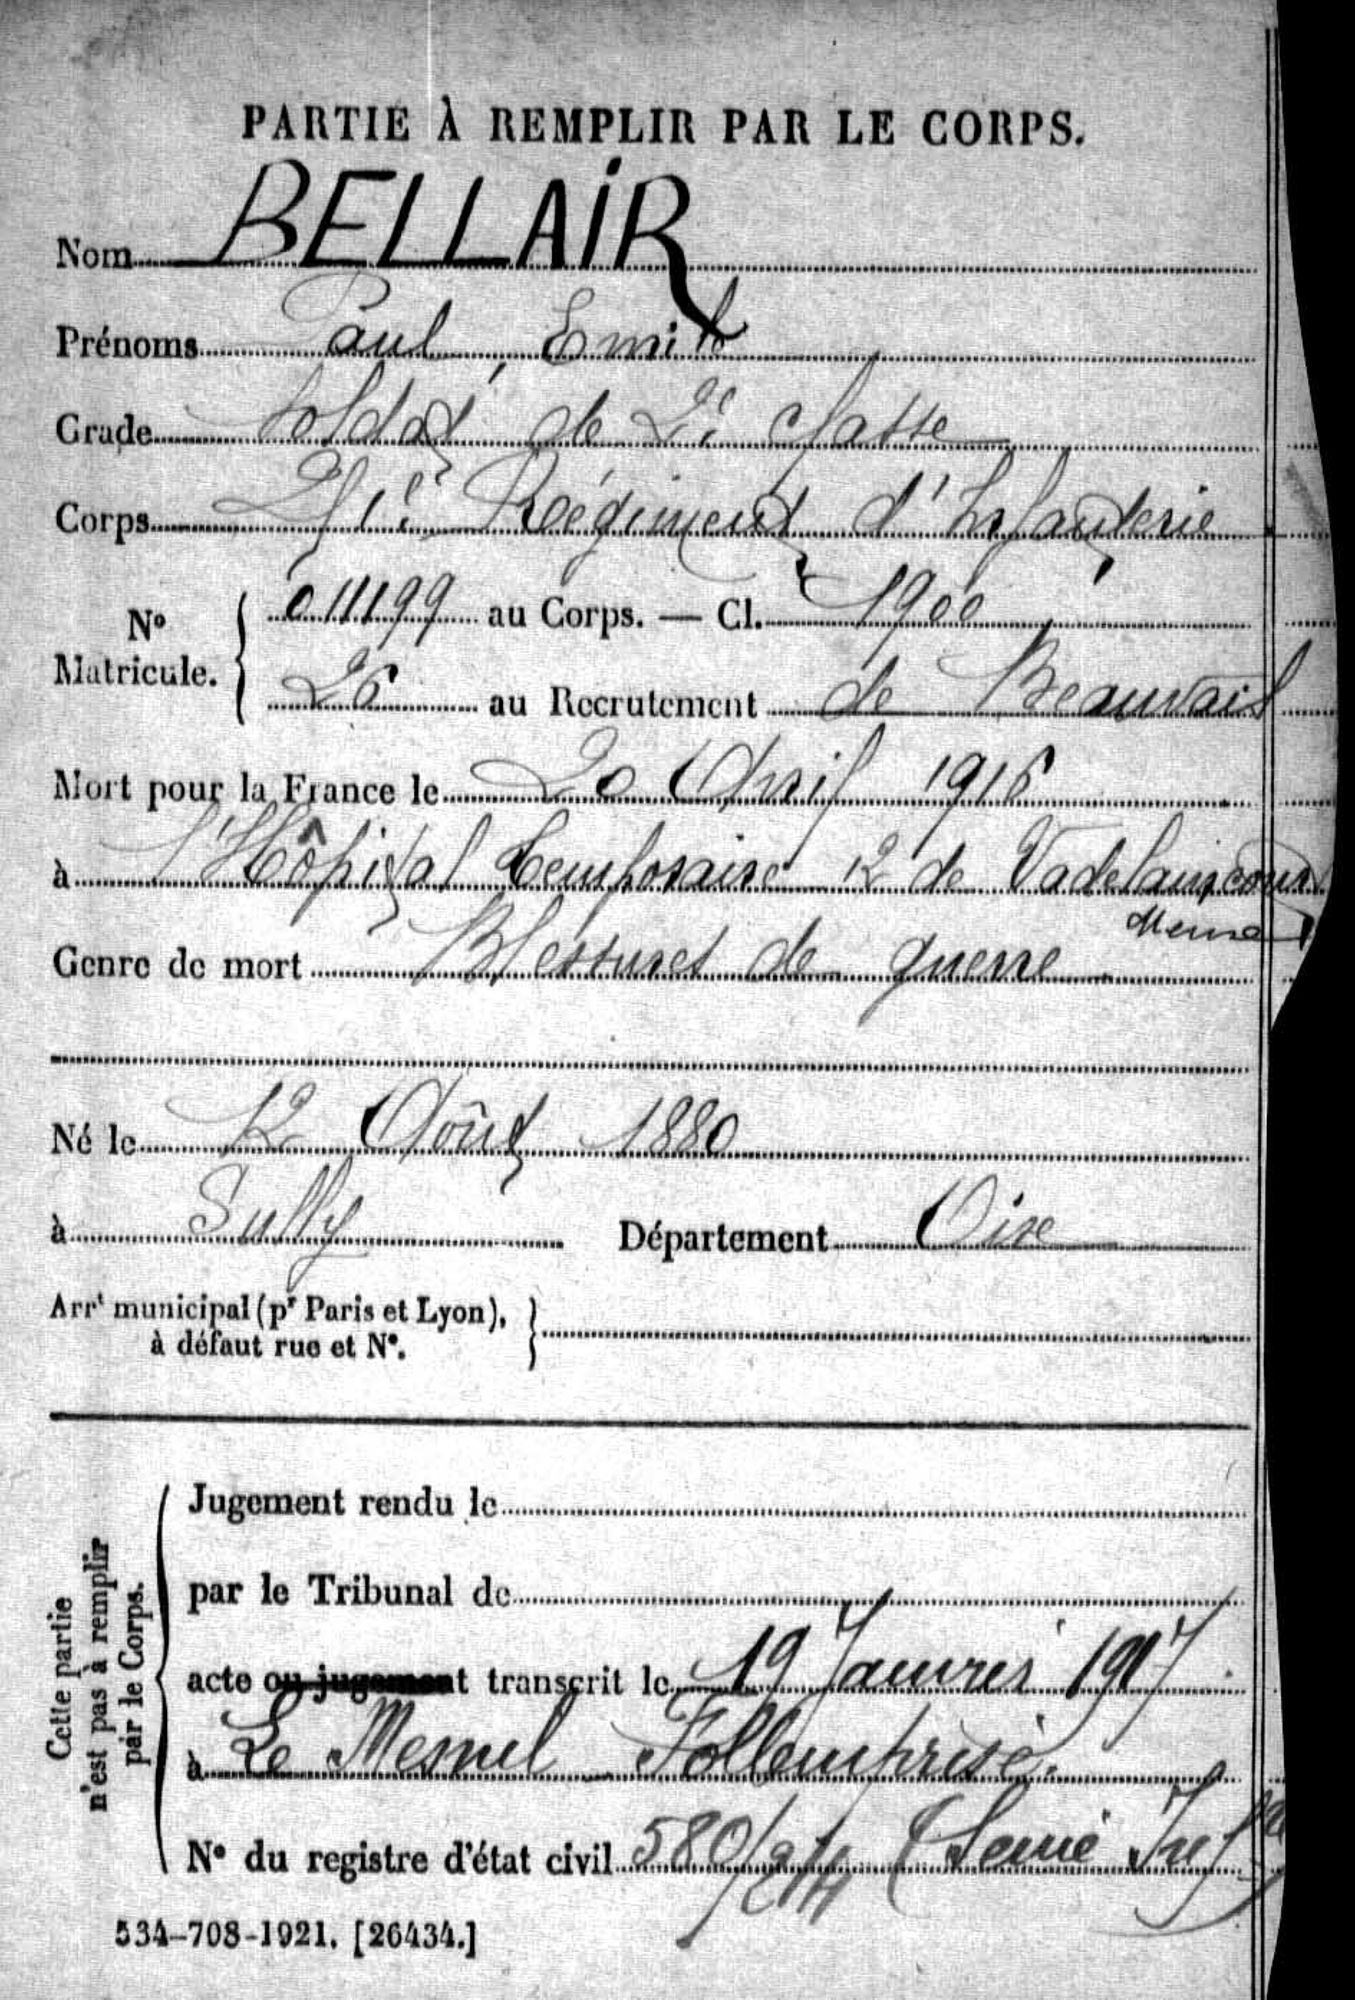 PARTIE À REMPLIR PAR LE CORPS.
Nom BELLAIR
Prénoms Paul, Emile
Grade Soldat de 2e classe
Corps 51e Régiment d'Infanterie
No Matricule. { 011199 au Corps. — Cl. 1900
26 au Recrutement de Beauvais
Mort pour la France le 20 Avril 1916
à l'Hôpital temporaire 12 de Vadelaincourt
Meuse
Genre de mort Blessures de guerre
Né le 12 Août 1880
à Sully Département Oise
Arrt municipal (pr Paris et Lyon), }
à défaut rue et No.
Cette partie
n'est pas à remplir
par le Corps.
Jugement rendu le
par le Tribunal de
acte ou jugement transcrit le 19 Janvier 1917
à Le Mesnil Follemprise.
No du registre d'état civil 580/214 (Seine Infre
534-708-1921. [26434.]